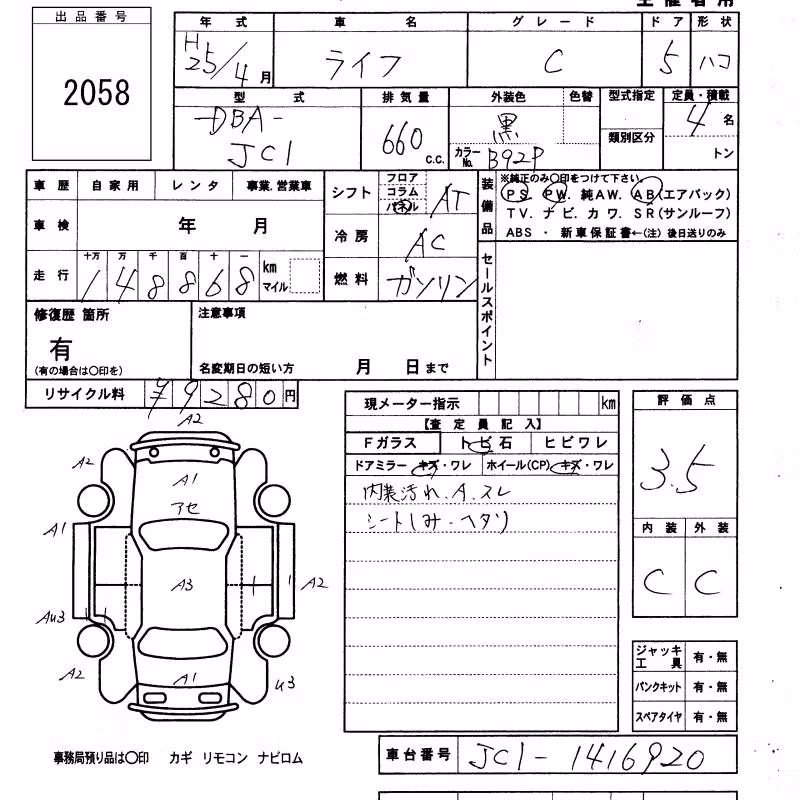 出品番号
2058
年式 車名 グレード ドア 形状
H25/4月 ライフ C 5 ハコ
型式 排気量 外装色 色替 型式指定 定員・積載
DBA-JC1 660 C.C. 黒 カラーNo. B92P 類別区分 4名 トン
車歴 自家用 レンタ 事業.営業車
車検 年 月
走行 十万 万 千 百 十 一 km マイル
148868
シフト フロア コラム パネル AT
冷房 AC
燃料 ガソリン
装備品 ※純正のみ〇印をつけて下さい。
PS. PW. 純AW. AB(エアバック)
TV. ナビ. カワ. SR(サンルーフ)
ABS ・ 新車保証書←(注) 後日送りのみ
セールスポイント
修復歴 箇所
有
(有の場合は〇印を)
注意事項
名変期日の短い方 月 日まで
リサイクル料 ¥9280円
現メーター指示 km
【査定員記入】
Fガラス トビ石 ヒビワレ
ドアミラー キズ・ワレ ホイール(CP) キズ・ワレ
内装汚れ.A.スレ
シートしみ・ヘタリ
評価点
3.5
内装 外装
C C
A2
A2 A1
アセ
A1
A3 A2
AU3
A2 A1 U3
ジャッキ工具 有・無
パンクキット 有・無
スペアタイヤ 有・無
事務局預り品は〇印 カギ リモコン ナビロム
車台番号 JC1-1416920